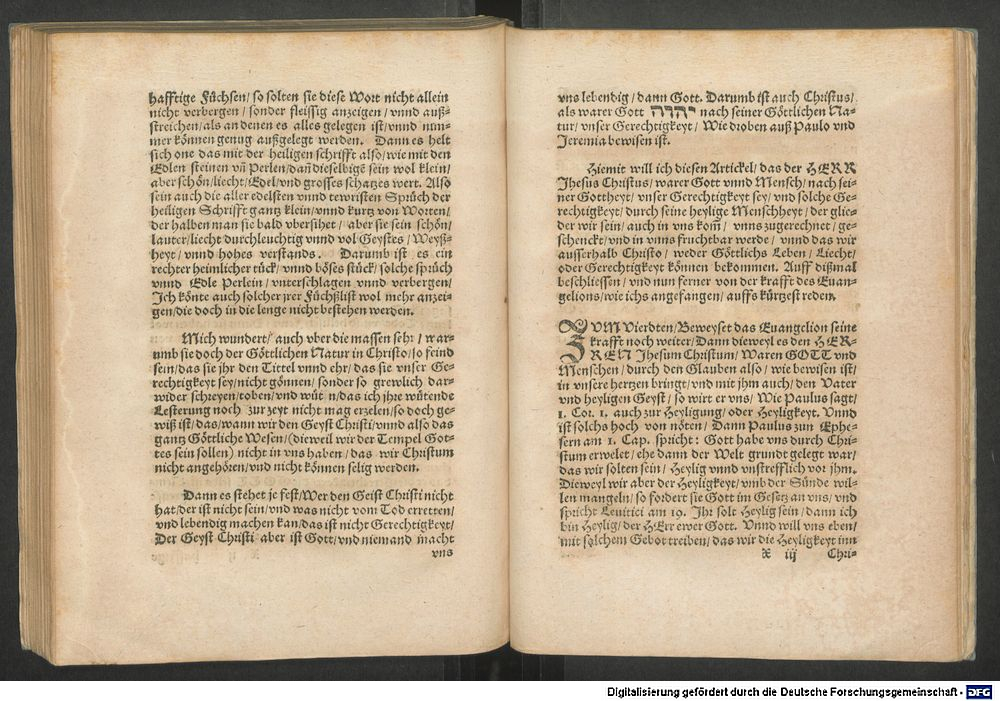 hafftige Füchsen/ so solten sie diese Wort nicht allein
nicht verbergen/ sonder fleissig anzeigen/ vnnd auß-
streichen/ als an denen es alles gelegen ist/ vnnd nim-
mer können genug außgelegt werden. Dann es helt
sich one das mit der heiligen schrifft also/ wie mit den
Edlen steinen vñ Perlen/ dañ dieselbige sein wol klein/
aber schön/ liecht/ Edel/ vnd grosses schatzes wert. Also
sein auch die aller edelsten vnnd tewristen Sprüch der
heiligen Schrifft gantz klein/ vnnd kurtz von Worten/
der halben man sie bald vbersihet/ aber sie sein schön/
lauter/ liecht durchleuchtig vnnd vol Geystes/ Weyß-
heyt/ vnnd hohes verstands. Darumb ist es ein
rechter heimlicher tück/ vnnd böses stück/ solche sprüch
vnnd Edle Perlein/ vnterschlagen vnnd verbergen/
Ich könte auch solcher jrer Füchßlist wol mehr anzei-
gen/ die doch in die lenge nicht bestehen werden.
Mich wundert/ auch vber die massen sehr/ war-
umb sie doch der Göttlichen Natur in Christo/ so feind
sein/ das sie jhr den Tittel vnnd ehr/ das sie vnser Ge-
rechtigkeyt sey/ nicht gönnen/ sonder so grewlich dar-
wider schreyen/ toben/ vnd wütn/ das ich jhre wütende
Lesterung noch zur zeyt nicht mag erzelen/ so doch ge-
wiß ist/ das/ wann wir den Geyst Christi/ vnnd also das
gantz Göttliche Wesen/ (dieweil wir der Tempel Got-
tes sein sollen) nicht in vns haben/ das wir Christum
nicht angehören/ vnd nicht können selig werden.
Dann es stehet je fest/ Wer den Geist Christi nicht
hat/ der ist nicht sein/ vnd was nicht vom Tod erretten/
vnd lebendig machen kan/ das ist nicht Gerechtigkeyt/
Der Geyst Christi aber ist Gott/ vnd niemand macht
vns
vns lebendig/ dann Gott. Darumb ist auch Christus/
als warer Gott יהוה nach seiner Göttlichen Na-
tur/ vnser Gerechtigkeyt/ Wie droben auß Paulo vnd
Jeremia bewisen ist.
Hiemit will ich diesen Artickel/ das der HERR
Jhesus Christus/ warer Gott vnnd Mensch/ nach sei-
ner Gottheyt/ vnser Gerechtigkeit sey/ vnd solche Ge-
rechtigkeyt/ durch seine heylige Menschheyt/ der glie-
der wir sein/ auch in vns kom̃/ vnns zugerechnet/ ge-
schenckt/ vnd in vnns fruchtbar werde/ vnnd das wir
ausserhalb Christo/ weder Göttlichs Leben/ Liecht/
oder Gerechtigkeyt können bekommen. Auff dißmal
beschliessen/ vnd nun ferner von der krafft des Euan-
gelions/ wie ichs angefangen/ auffs kürtzest reden.
ZVM Vierdten/ Beweyset das Euangelion seine
krafft noch weiter/ Dann dieweyl es den HER-
REN Jhesum Christum/ Waren GOTT vnd
Menschen/ durch den Glauben also/ wie bewisen ist/
in vnsere hertzen bringt/ vnd mit jhm auch/ den Vater
vnd heyligen Geyst/ so wirt er vns/ Wie Paulus sagt/
1. Cor. 1. auch zur Heyligung/ oder Heyligkeyt. Vnnd
ist solchs hoch von nöten/ Dann Paulus zun Ephe-
sern am 1. Cap. spricht: Gott habe vns durch Chri-
stum erwelet/ ehe dann der Welt grundt gelegt war/
das wir solten sein/ Heylig vnnd vnstrefflich vor jhm.
Dieweyl wir aber der Heyligkeyt/ vmb der Sünde wil-
len mangeln/ so fordert sie Gott im Gesetz an vns/ vnd
spricht Leuitici am 19. Jhr solt Heylig sein/ dann ich
bin Heylig/ der HErr ewer Gott. Vnnd will vns eben/
mit solchem Gebot treiben/ das wir die Heyligkeyt inn
X iij Chri-
Digitalisierung gefördert durch die Deutsche Forschungsgemeinschaft - DFG